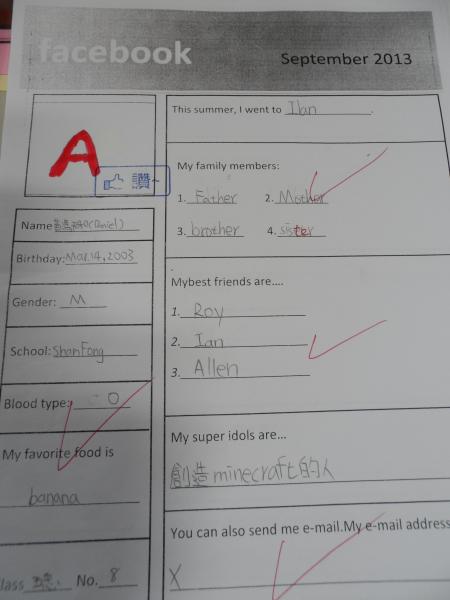 facebook
September 2013
A
讚
This summer, I went to Ilan.
My family members:
1. Father 2. Mother
3. brother 4. sister
Name (Daniel)
Birthday: Mar.14,2003
Gender: M
School: ShanFong
Blood type: O
My favorite food is
banana
lass No. 8
Mybest friends are....
1. Roy
2. Ian
3. Allen
My super idols are...
創造minecraft的人
You can also send me e-mail.My e-mail address
X